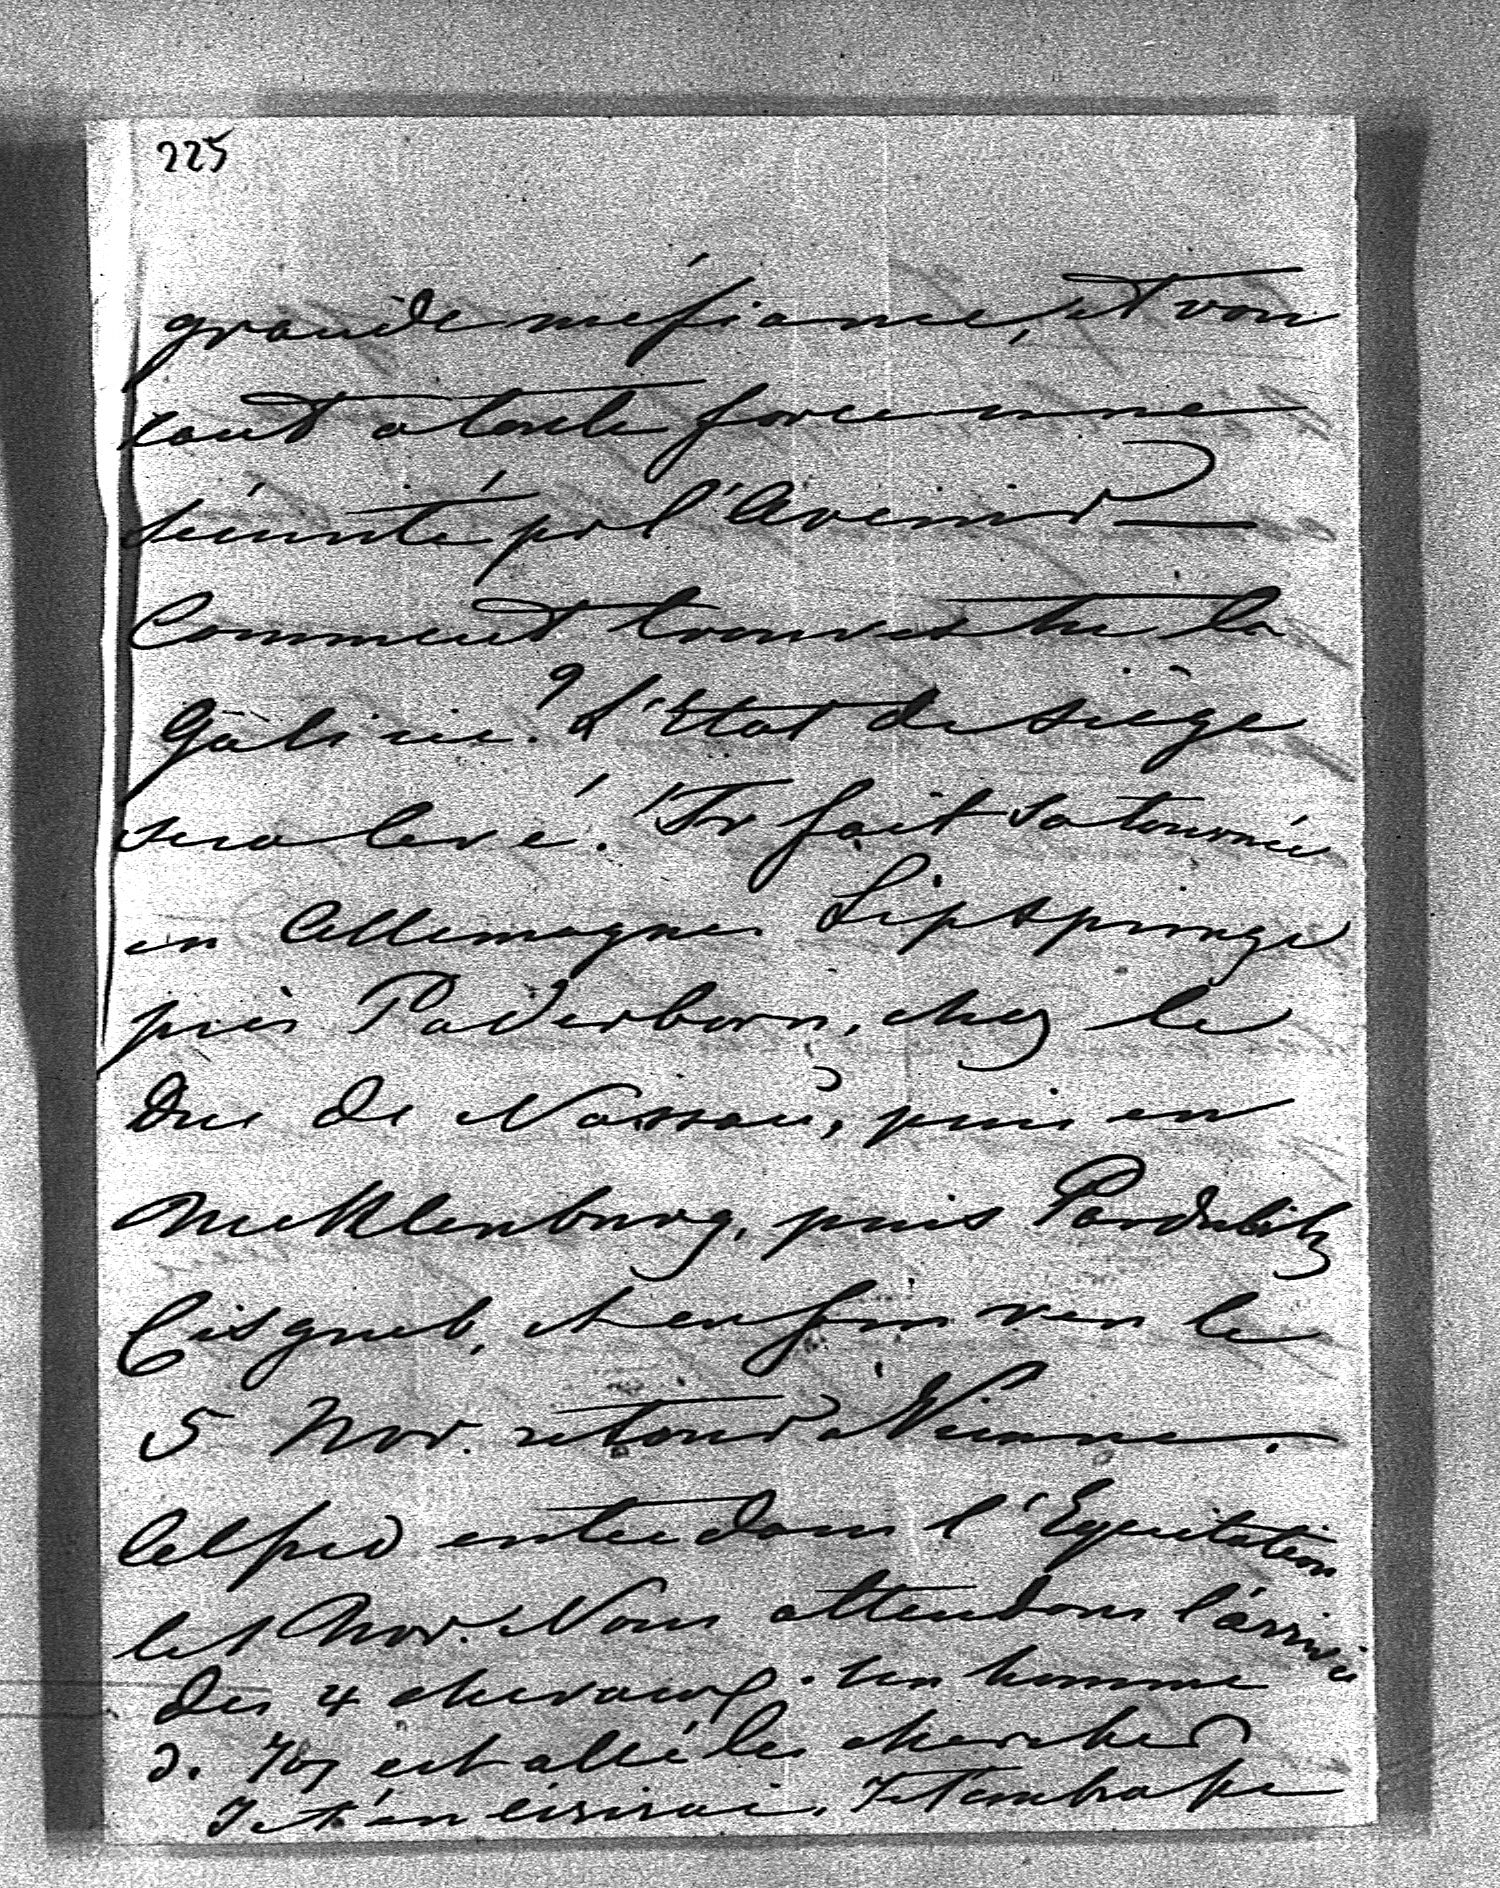 225
grande mefiance, et von
tout a toute force une
sécurité pr l'Avenir —
Comment trouves tu la
Galicie? L'Etat de siège
sera levé! Fr fait sa tournée
en Allemagne Lipspringe
près Paderborn, chez le
Duc de Nassau, puis en
Mecklenburg, puis Pardubitz
Eisgrub, et enfin ven le
5 Nov. retour a Vienne.
Alfred entre dans l'Equitation
le 1 Nov. Nous attendons l'arrivée
des 4 chevaux. Un homme
d. est allé les chercher
Je t'en écrirai. Je t'embrasse